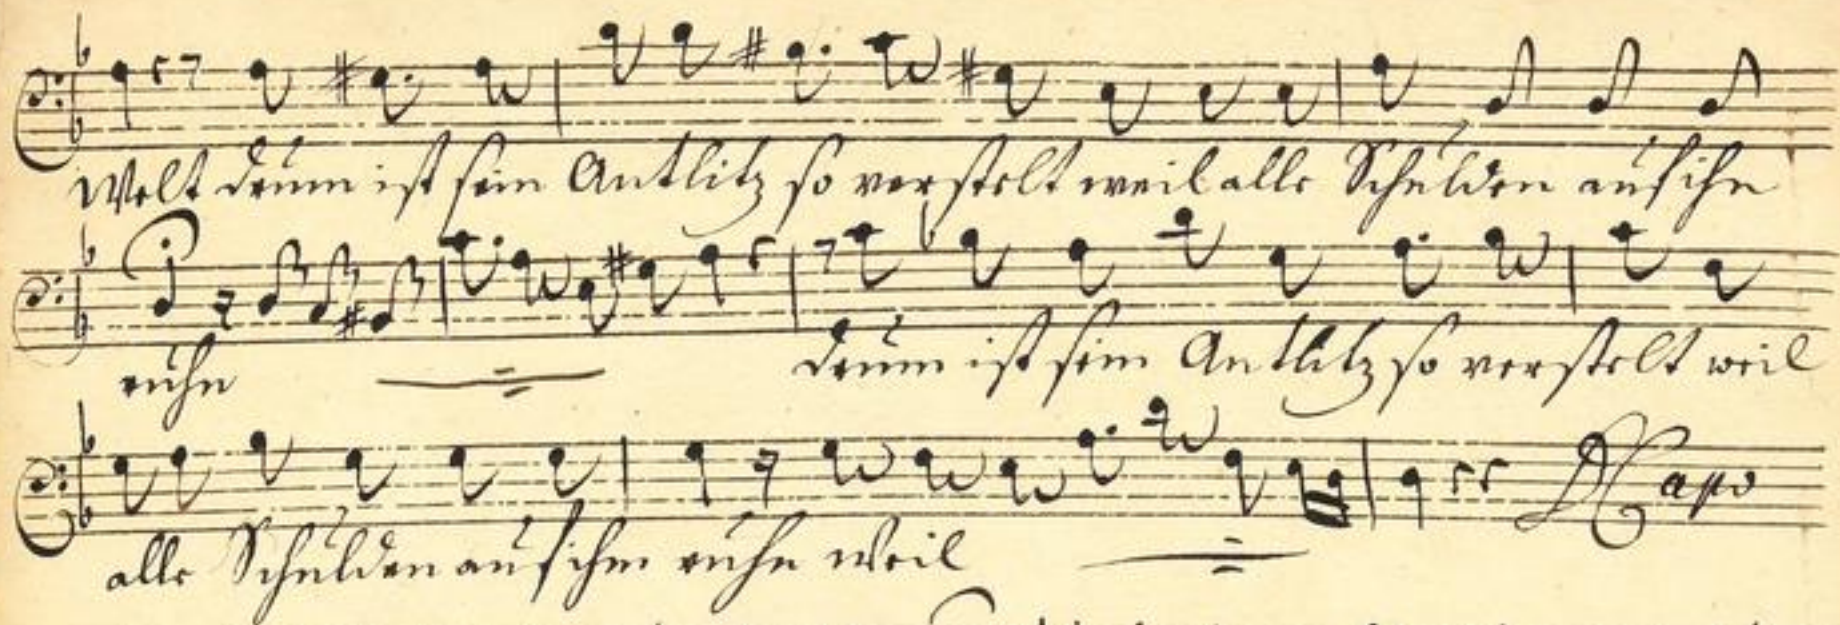 Welt drum ist sein Antlitz so verstelt weil alle Schulden auf ihn
ruhn drum ist sein Antlitz so verstelt weil
alle Schulden auf ihm ruhn weil
D Capo